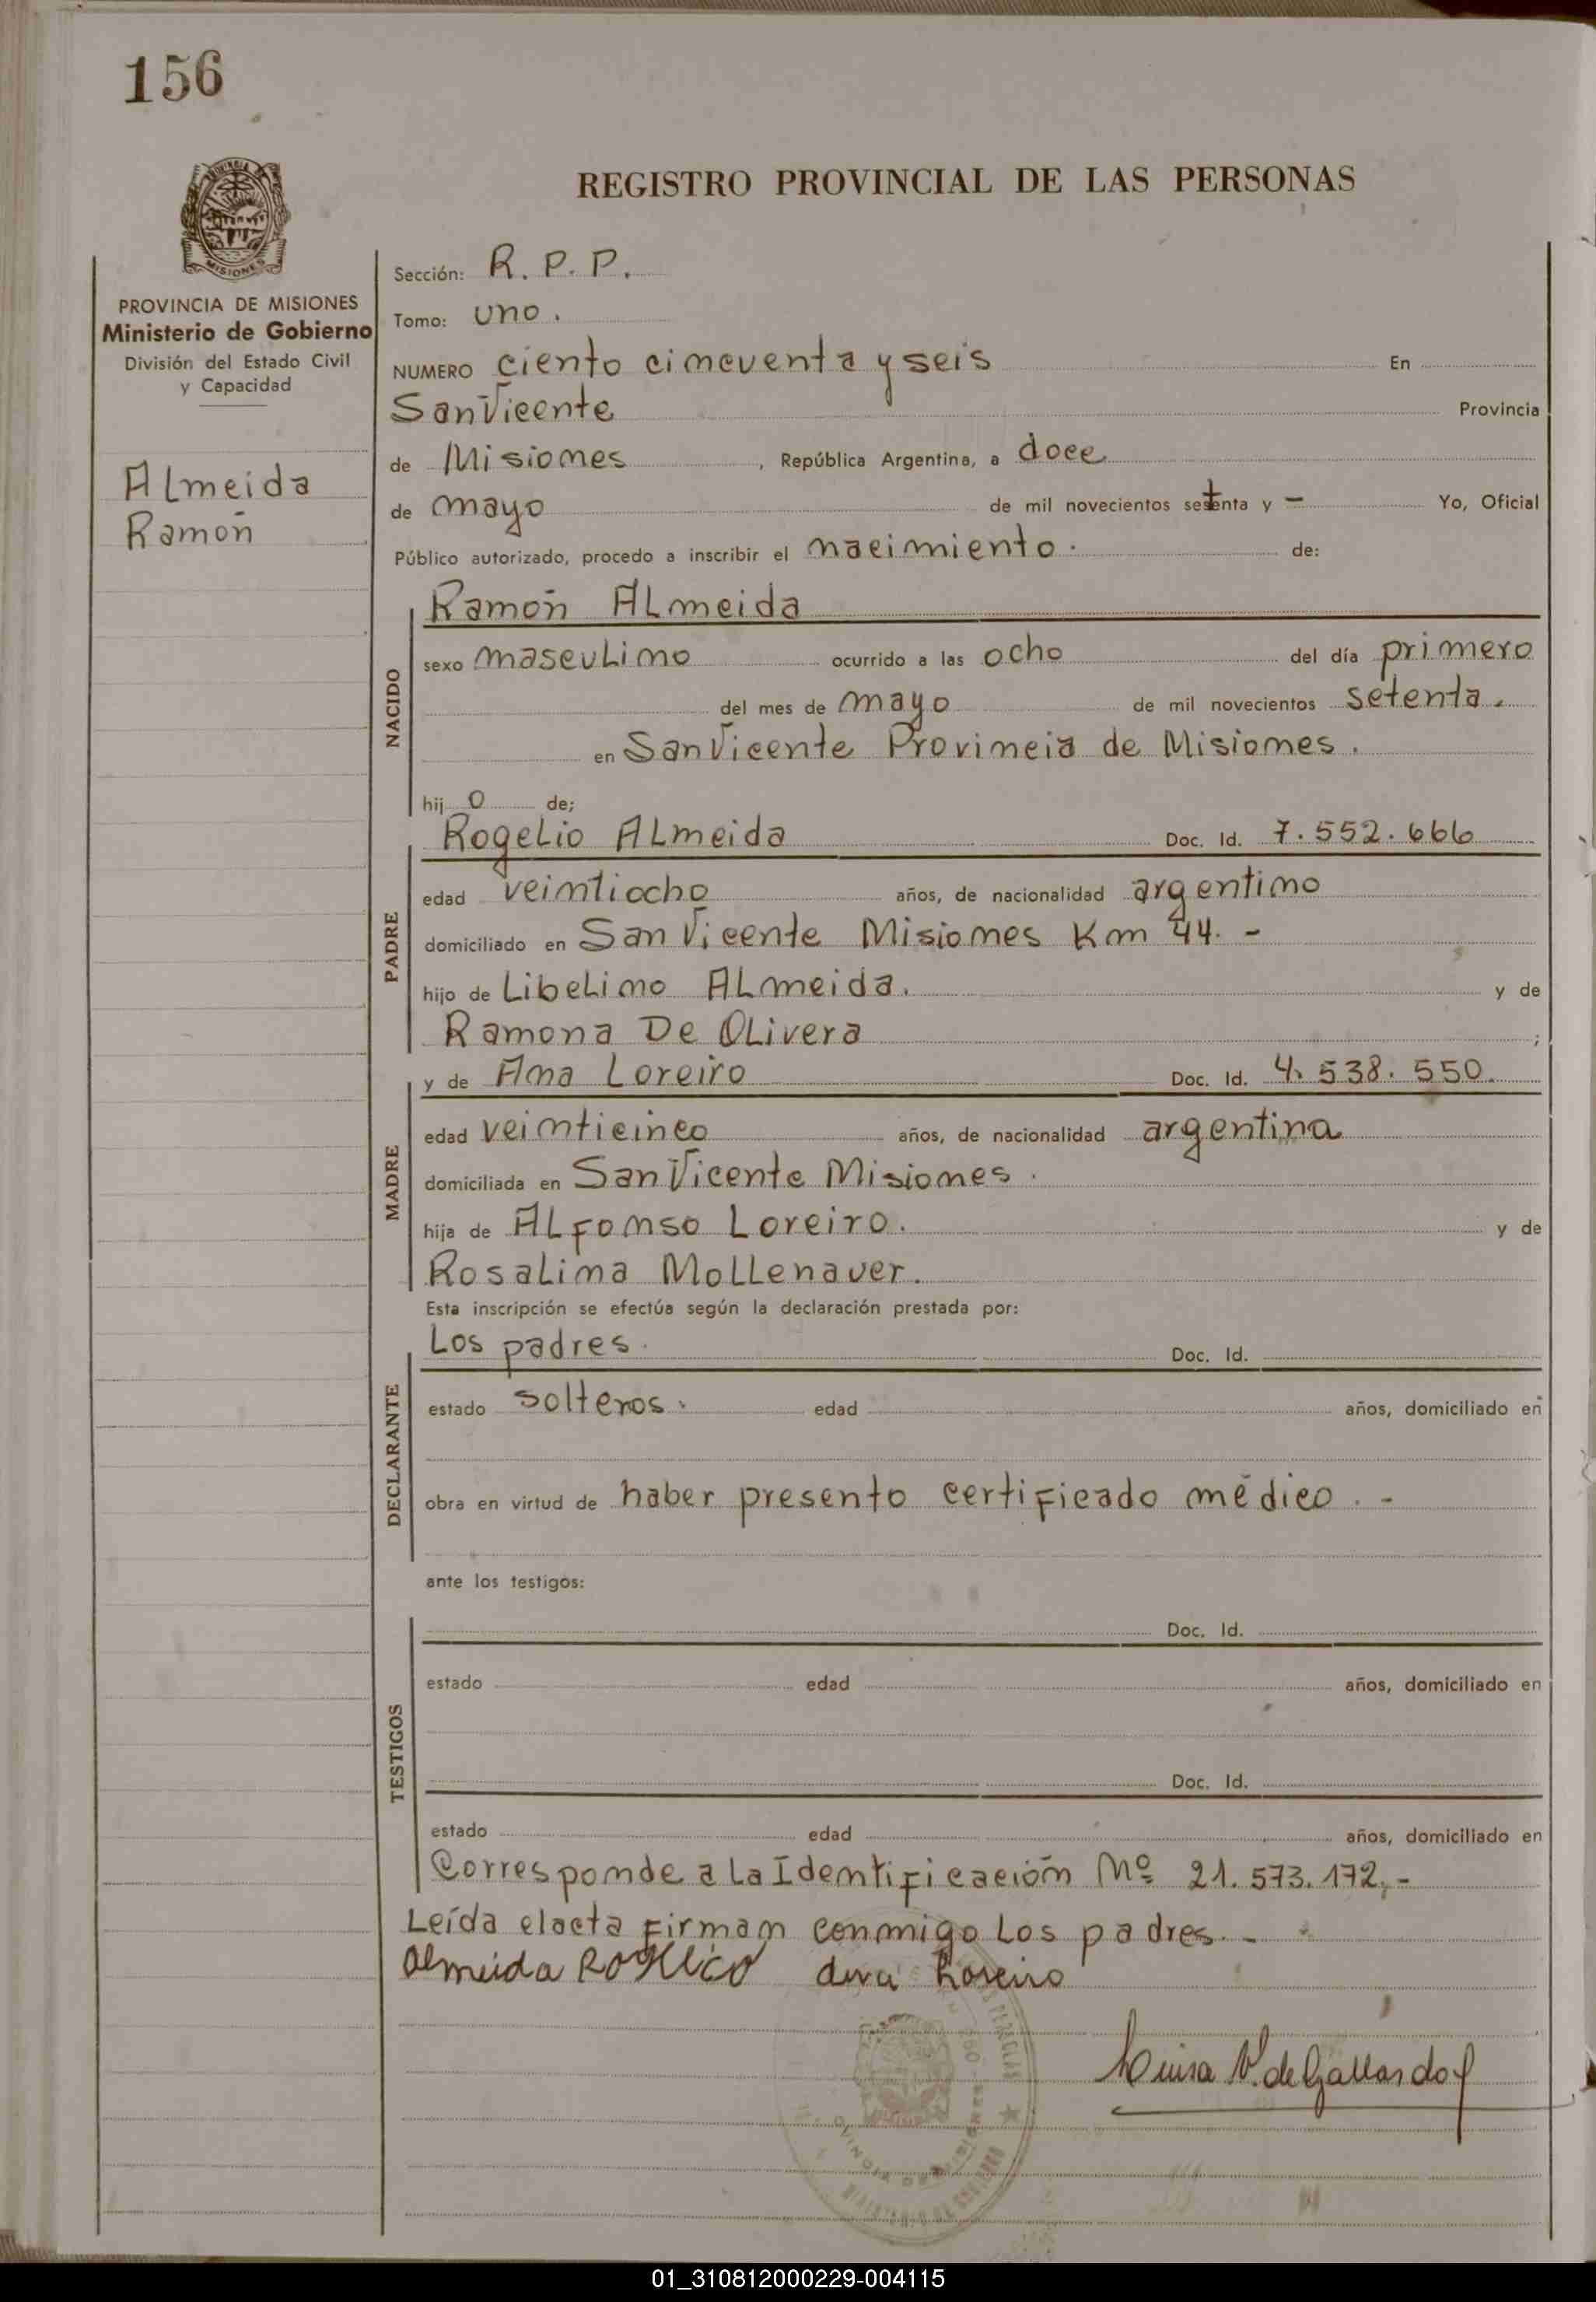 156
REGISTRO PROVINCIAL DE LAS PERSONAS
MISIONES
PROVINCIA DE MISIONES
Ministerio de Gobierno
División del Estado Civil
y Capacidad
Almeida
Ramón
Sección: R. P. P.
Tomo: uno.
NUMERO ciento cincuenta y seis En
San Vicente Provincia
de Misiones, República Argentina, a doce
de mayo de mil novecientos setenta y - Yo, Oficial
Público autorizado, procedo a inscribir el nacimiento. de:
NACIDO
Ramón Almeida
sexo masculino ocurrido a las ocho del día primero
del mes de mayo de mil novecientos setenta.
en San Vicente Provincia de Misiones.
hij o de;
PADRE
Rogelio Almeida Doc. Id. 7.552.666
edad veintiocho años, de nacionalidad argentino
domiciliado en San Vicente Misiones Km 44. -
hijo de Libelino Almeida. y de
Ramona De Olivera ;
MADRE
y de Ana Loreiro Doc. Id. 4.538.550
edad veinticinco años, de nacionalidad argentina
domiciliada en San Vicente Misiones.
hija de Alfonso Loreiro. y de
Rosalina Mollenauer.
Esta inscripción se efectúa según la declaración prestada por:
DECLARANTE
Los padres. Doc. Id.
estado solteros. edad años, domiciliado en
obra en virtud de haber presento certificado médico. -
ante los testigos:
TESTIGOS
Doc. Id.
estado edad años, domiciliado en
Doc. Id.
estado edad años, domiciliado en
Corresponde a la Identificación Nº 21.573.172,-
Leída el acta firman conmigo los padres. -
Almeida Rogelio Ana Loreiro
Luisa V. de Gallardo
01_310812000229-004115